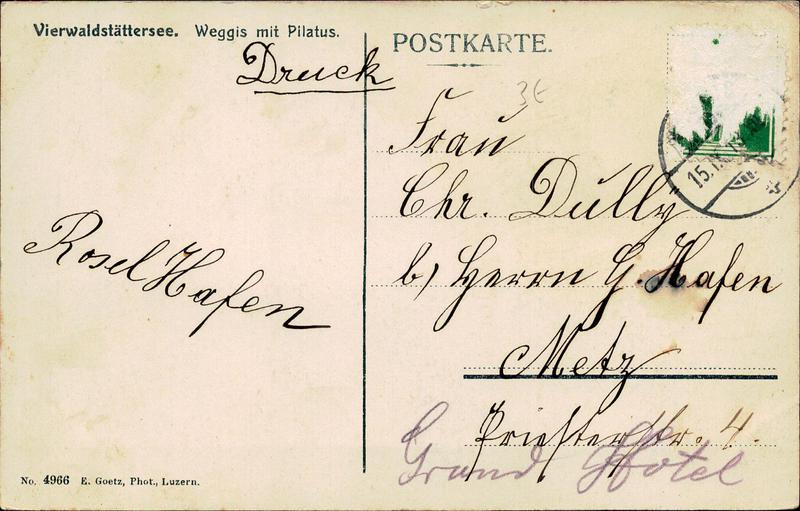 Vierwaldstättersee. Weggis mit Pilatus.
POSTKARTE.
Druck
3€
Frau
Chr. Dully
b/ Herrn G. Hafen
Metz
Priesterstr. 4.
Grand Hotel
Rosel Hafen
15.
No. 4966 E. Goetz, Phot., Luzern.